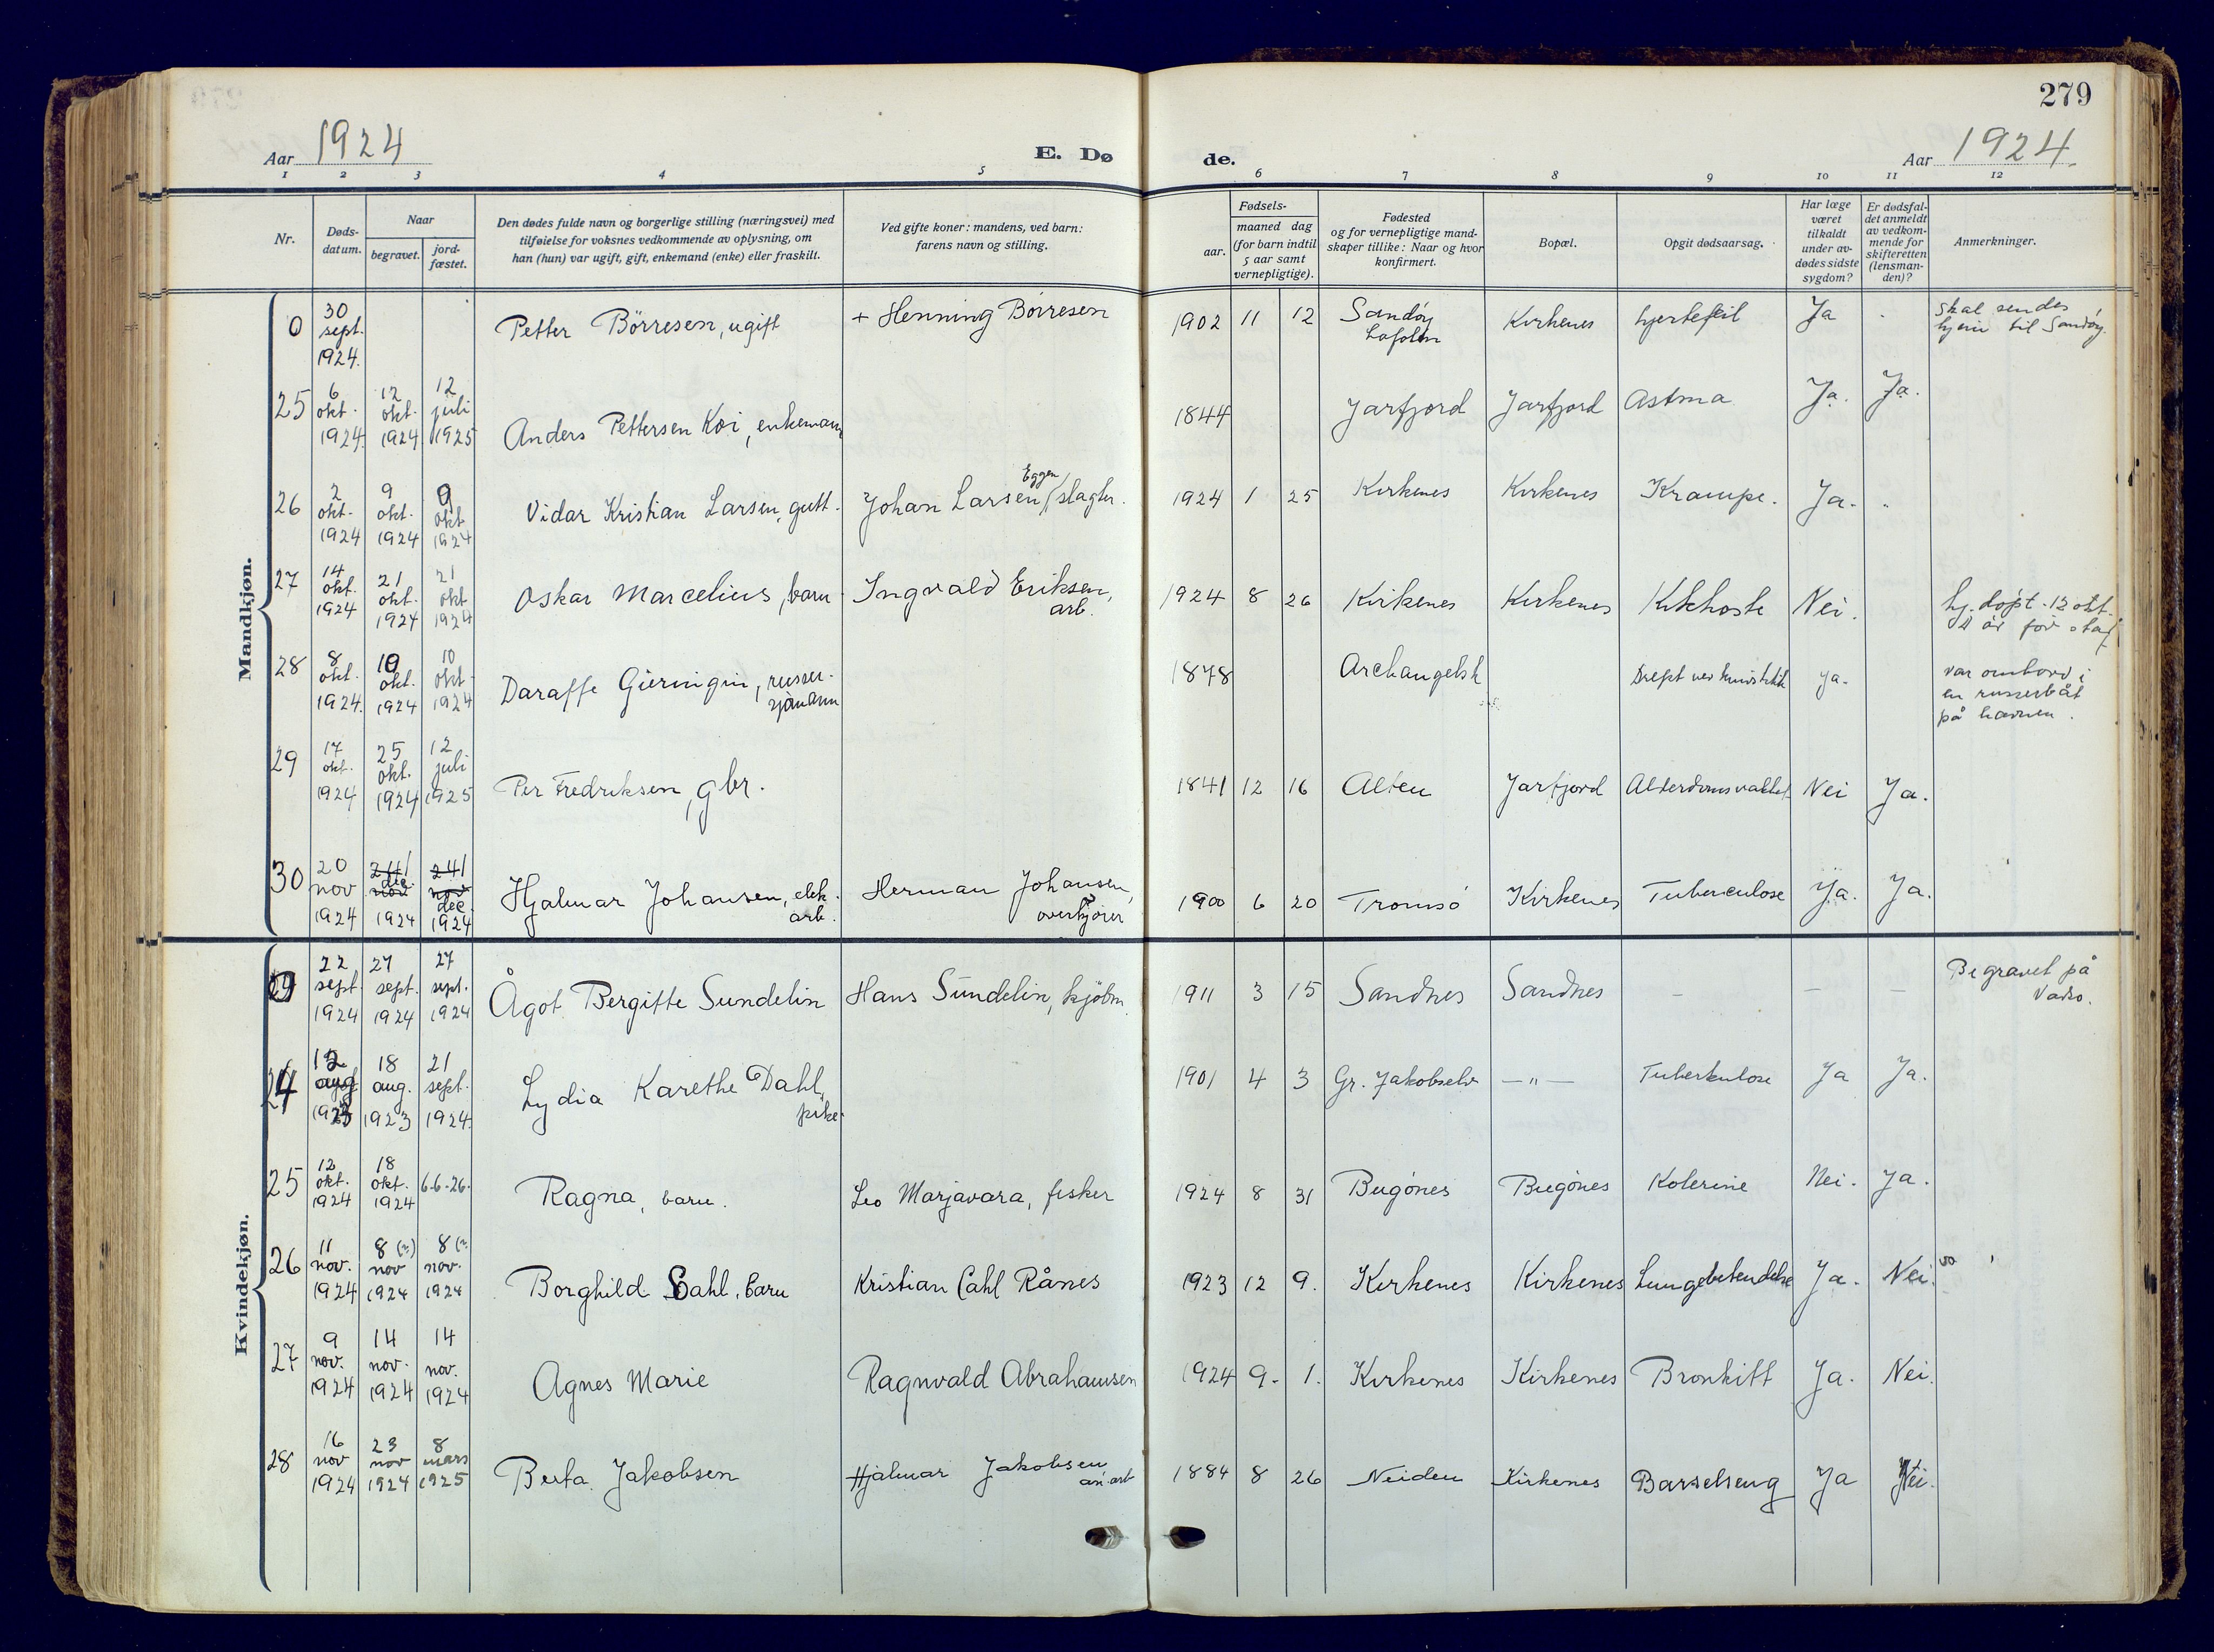 279
Aar 1924
E. Dø
de.
Aar 1924.
1 2 3 4 5 6 7 8 9 10 11 12
Nr.
Døds-
datum.
Naar
begravet.
jord-
fæstet.
Den dødes fulde navn og borgerlige stilling (næringsvei) med
tilføielse for voksnes vedkommende av oplysning, om
han (hun) var ugift, gift, enkemand (enke) eller fraskilt.
Ved gifte koner: mandens, ved barn:
farens navn og stilling.
Fødsels-
aar.
maaned dag
(for barn indtil
5 aar samt
vernepligtige).
Fødested
og for vernepligtige mand-
skaper tillike: Naar og hvor
konfirmert.
Bopæl.
Opgit dødsaarsag.
Har læge
været
tilkaldt
under av-
dødes sidste
sygdom?
Er dødsfal-
det anmeldt
av vedkom-
mende for
skifteretten
(lensman-
den)?
Anmerkninger.
Mandkjøn.
0
30
sept.
1924.
Petter Börresen, ugift
+ Henning Börresen
1902 11 12
Sandöy
Kirkenes
hjertefeil
Ja
Skal sendes
hjem til Sandöy.
25
6
okt.
1924
12
okt.
1924
12
juli
1925
Anders Pettersen Koi, enkemann
1844
Jarfjord
Jarfjord
Astma
Ja.
Ja.
26
2
okt.
1924
9
okt.
1924
9
okt
1924
Vidar Kristian Larsen, gutt.
Eggen
Johan Larsen, slagter.
1924 1 25
Kirkenes
Kirkenes
Krampe.
Ja.
27
14
okt.
1924
21
okt.
1924
21
okt
1924
Oskar Marcelius, barn
Ingvald Eriksen,
arb.
1924 8 26
Kirkenes
Kirkenes
Kikhoste
Nei.
hj. döpt. 12 okt.
28
8
okt.
1924.
10
okt.
1924
10
okt.
1924
Daraffe Gieringin, russer.
sjömann
1878
Archangelsk
Drept ved knivstikk
ja.
var ombord i
en russerbåt
på havnen.
29
17
okt.
1924
25
okt.
1924
12
juli
1925
Per Fredriksen, gbr.
1841 12 16
Alten
Jarfjord
Alderdomsvakhet
Nei
Ja.
30
20
nov
1924
nov
dec.
1924
nov
dec.
1924
Hjalmar Johansen, elek.
arb.
Herman Johansen,
overkjörer
1900 6 20
Tromsö
Kirkenes
Tuberculose
Ja.
Ja.
Kvindekjøn.
0
22
sept.
1924
27
sept.
1924
27
sept.
1924
Ågot Bergitte Sundelin
Hans Sundelin, kjöbm.
1911 3 15
Sandnes
Sandnes
–
–
–
Begravet på
Vadsö.
24
12
aug
1923
18
aug.
1923
21
sept.
1924.
Lydia Karethe Dahl,
pike.
1901 4 3
Gr. Jakobselv
— " —
Tuberkulose
Ja
Ja.
25
12
okt.
1924
18
okt.
1924
6.6.26.
Ragna, barn.
Leo Marjavara, fisker
1924 8 31
Bugönes
Bugönes
Kolerine
Nei.
Ja.
26
11
nov.
1924
8 (?)
nov
1924
8 (?)
nov.
1924
Borghild Dahl, barn
Kristian Dahl Rånes
1923 12 9.
Kirkenes
Kirkenes
Lungebetendelse
Ja.
Nei.
27
9
nov.
1924
14
nov.
1924
14
nov.
1924
Agnes Marie
Ragnvald Abrahamsen
1924 9. 1.
Kirkenes
Kirkenes
Bronkitt
Ja.
Nei.
28
16
nov
1924
23
nov
1924
8
mars
1925
Berta Jakobsen
Hjalmar Jakobsen
an.arb
1884 8 26
Neiden
Kirkenes
Barselseng
Ja
Nei.